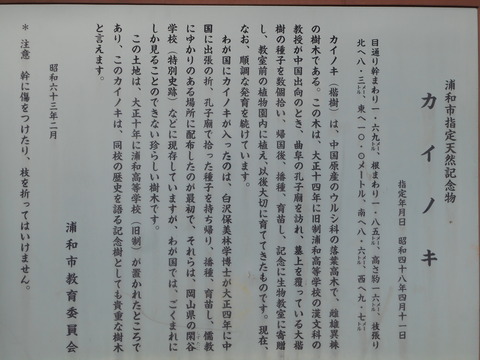 浦和市指定天然記念物
カイノキ
指定年月日　昭和四十八年四月十一日
目通り幹まわり一・六九メートル、根まわり一・八五メートル、高さ約一六メートル、枝張り
北へ八・三メートル、東へ一〇・〇メートル、南へ八・六メートル、西へ九・七メートル
カイノキ（楷樹）は、中国原産のウルシ科の落葉高木で、雌雄異株
の樹木である。この木は、大正十四年に旧制浦和高等学校の漢文科の
教授が中国出向のとき、曲阜の孔子廟を訪れ、墓上を覆っている大楷
樹の種子を数個拾い、帰国後、播種、育苗し、記念に生物教室に寄贈
し、教室前の植物園内に植え、以後大切に育ててきたものです。現在、
なお、順調な発育を続けています。
わが国にカイノキが入ったのは、白沢保美林学博士が大正四年に中
国に出張の折、孔子廟で拾った種子を持ち帰り、播種、育苗し、儒教
にゆかりのある場所に配布したのが最初で、それらは、岡山県の閑谷
学校（特別史跡）などに現存していますが、わが国では、ごくまれに
しか見ることのできない珍らしい樹木です。
この土地は、大正十年に浦和高等学校（旧制）が置かれたところで
あり、このカイノキは、同校の歴史を語る記念樹としても貴重な樹木
と言えます。
昭和六十三年二月
浦和市教育委員会
＊　注意　幹に傷をつけたり、枝を折ってはいけません。